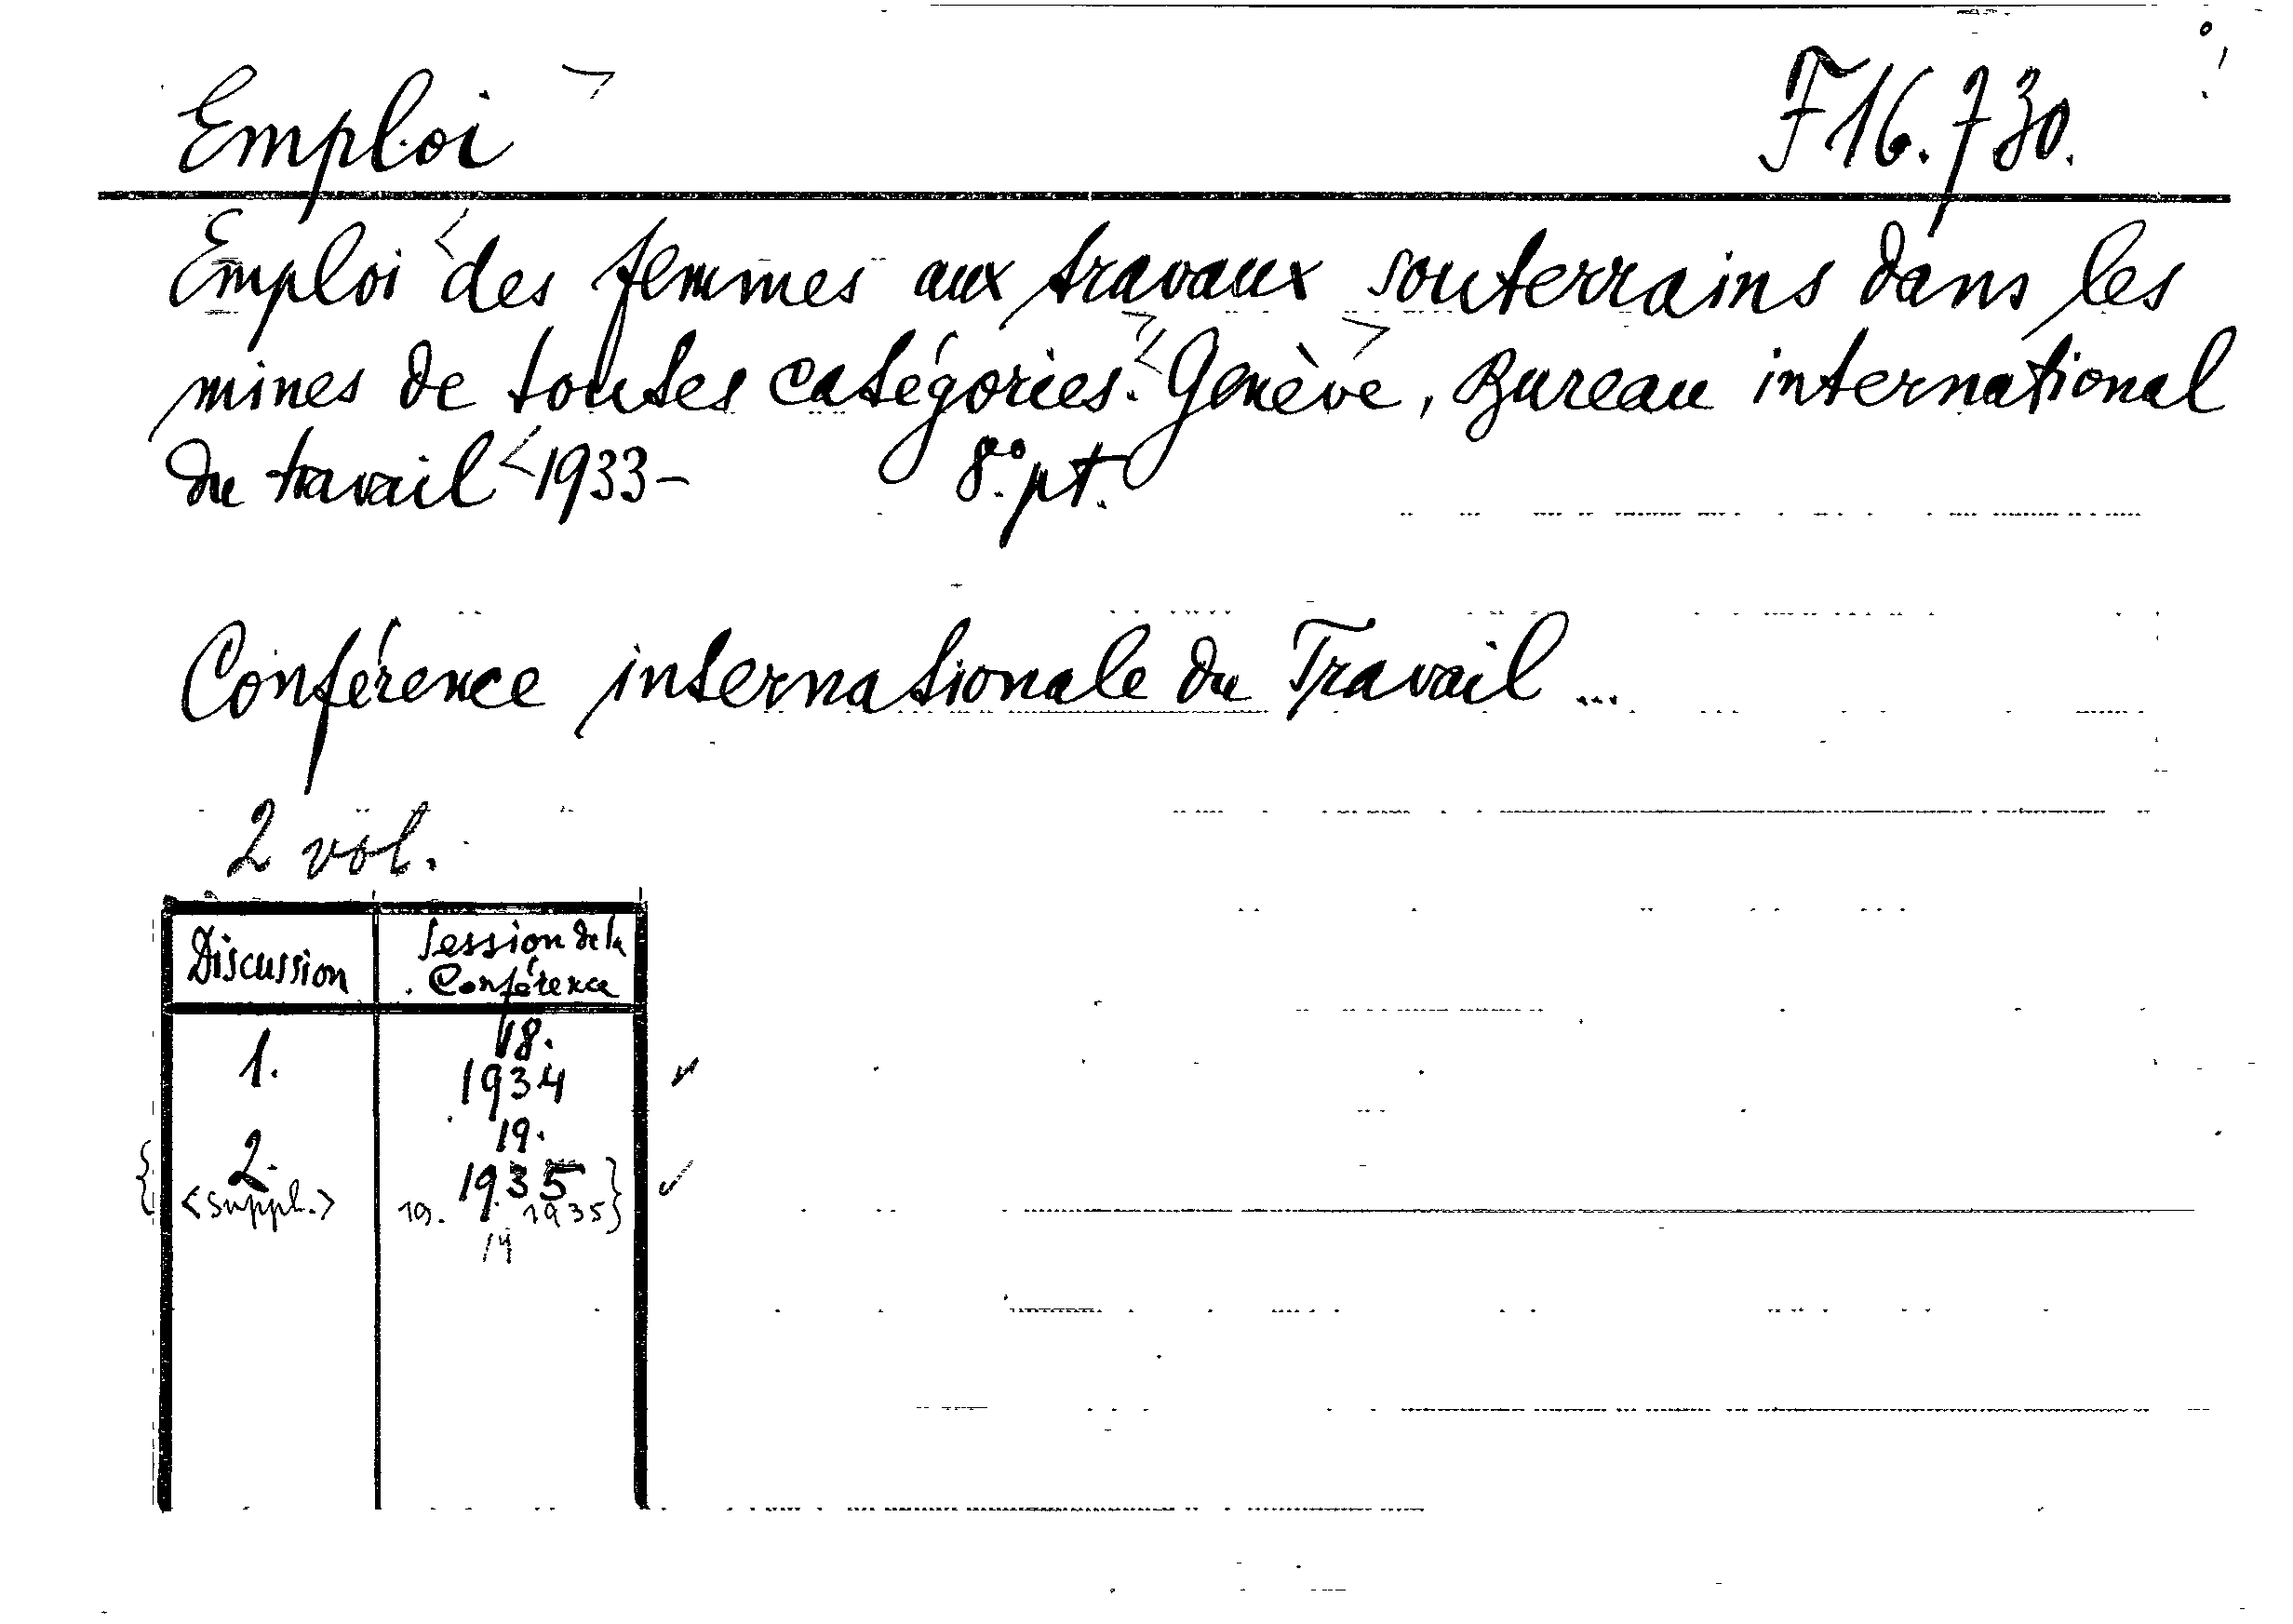 Emploi F16.730.
Emploi des femmes aux travaux souterrains dans les
mines de toutes catégories. Genève, Bureau international
du travail 1933- 8° pt.
Conférence internationale du Travail ...
2 vol.
Discussion Session de la
Conférence
18.
1. 1934
19.
2. 1935
<suppl.> 19. 1935
14